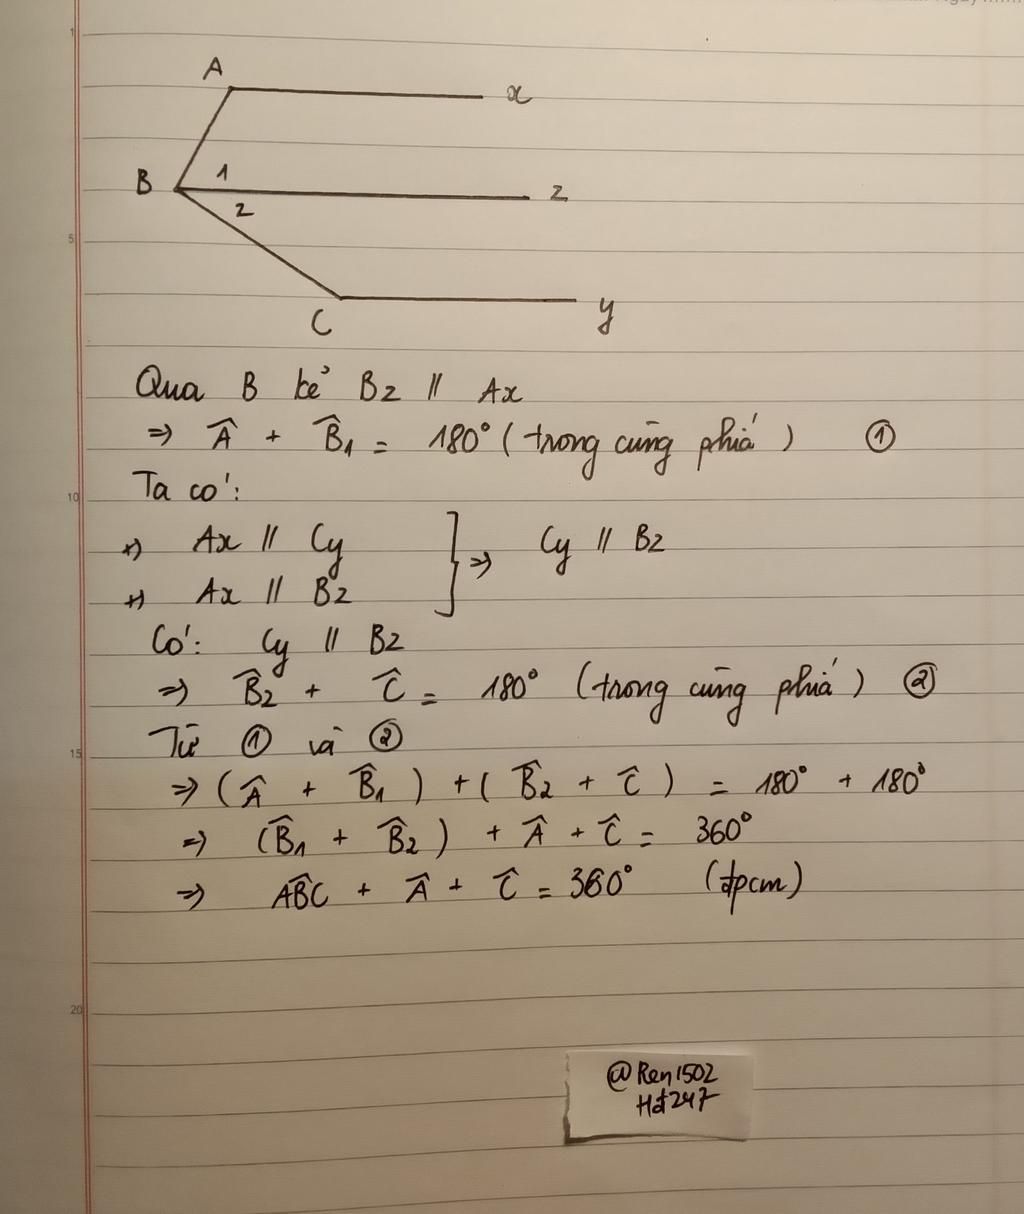 A
x
B
1
z
2
C
y
Qua B kẻ Bz // Ax
=> Â + B̂1 = 180° (trong cùng phía) ①
Ta có:
+) Ax // Cy
=> Cy // Bz
+) Ax // Bz
Có: Cy // Bz
=> B̂2 + Ĉ = 180° (trong cùng phía) ②
Từ ① và ②
=> (Â + B̂1) + (B̂2 + Ĉ) = 180° + 180°
=> (B̂1 + B̂2) + Â + Ĉ = 360°
=> AB̂C + Â + Ĉ = 360° (đpcm)
@Ren1502
Hđ247
1
5
10
15
20